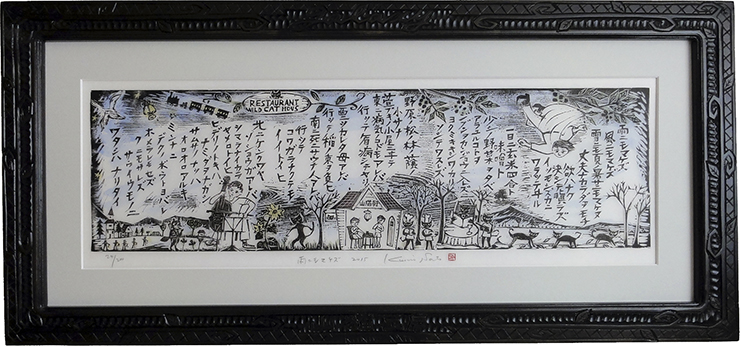 雨ニモマケズ
風ニモマケズ
雪ニモ夏ノ暑サニモマケヌ
丈夫ナカラダヲモチ
慾ハナク
決シテ瞋ラズ
イツモシヅカニ
ワラッテヰル
一日ニ玄米四合ト
味噌ト
少シノ野菜ヲタベ
アラユルコトヲ
ジブンヲカンジョウニ入レズニ
ヨクミキキシワカリ
ソシテワスレズ
野原ノ松ノ林ノ蔭ノ
小サナ
萱ブキノ小屋ニヰテ
東ニ病気ノコドモアレバ
行ッテ看病シテヤリ
西ニツカレタ母アレバ
行ッテソノ稲ノ束ヲ負ヒ
南ニ死ニサウナ人アレバ
行ッテ
コワガラナクテモ
イイトイヒ
北ニケンクヮヤ
ソショウガアレバ
ツマラナイカラ
ヤメロトイヒ
ヒデリノトキハ
ナミダヲナガシ
サムサノナツハ
オロオロアルキ
ミンナニ
デクノボートヨバレ
ホメラレモセズ
クニモサレズ
サウイフモノニ
ワタシハナリタイ
RESTAURANT
WILD CAT HOUS
雨ニモマケズ 2015